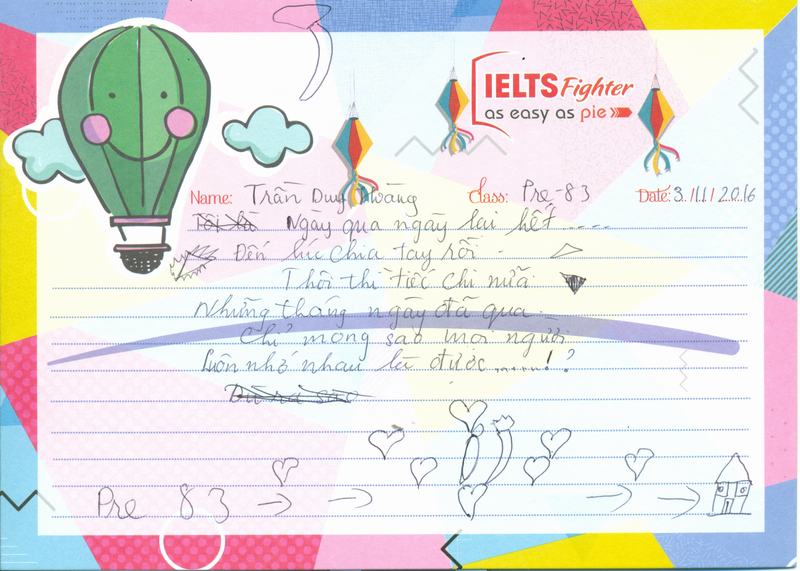 IELTS Fighter
as easy as pie
Name: Trần Duy Hoàng Class: Pre-83 Date: 3/11/2016
Ngày qua ngày lại hết.....
Đến lúc chia tay rồi
Thôi thì tiếc chi nữa
Những tháng ngày đã qua
Chỉ mong sao mọi người
Luôn nhớ nhau là được......! ?
Pre 83